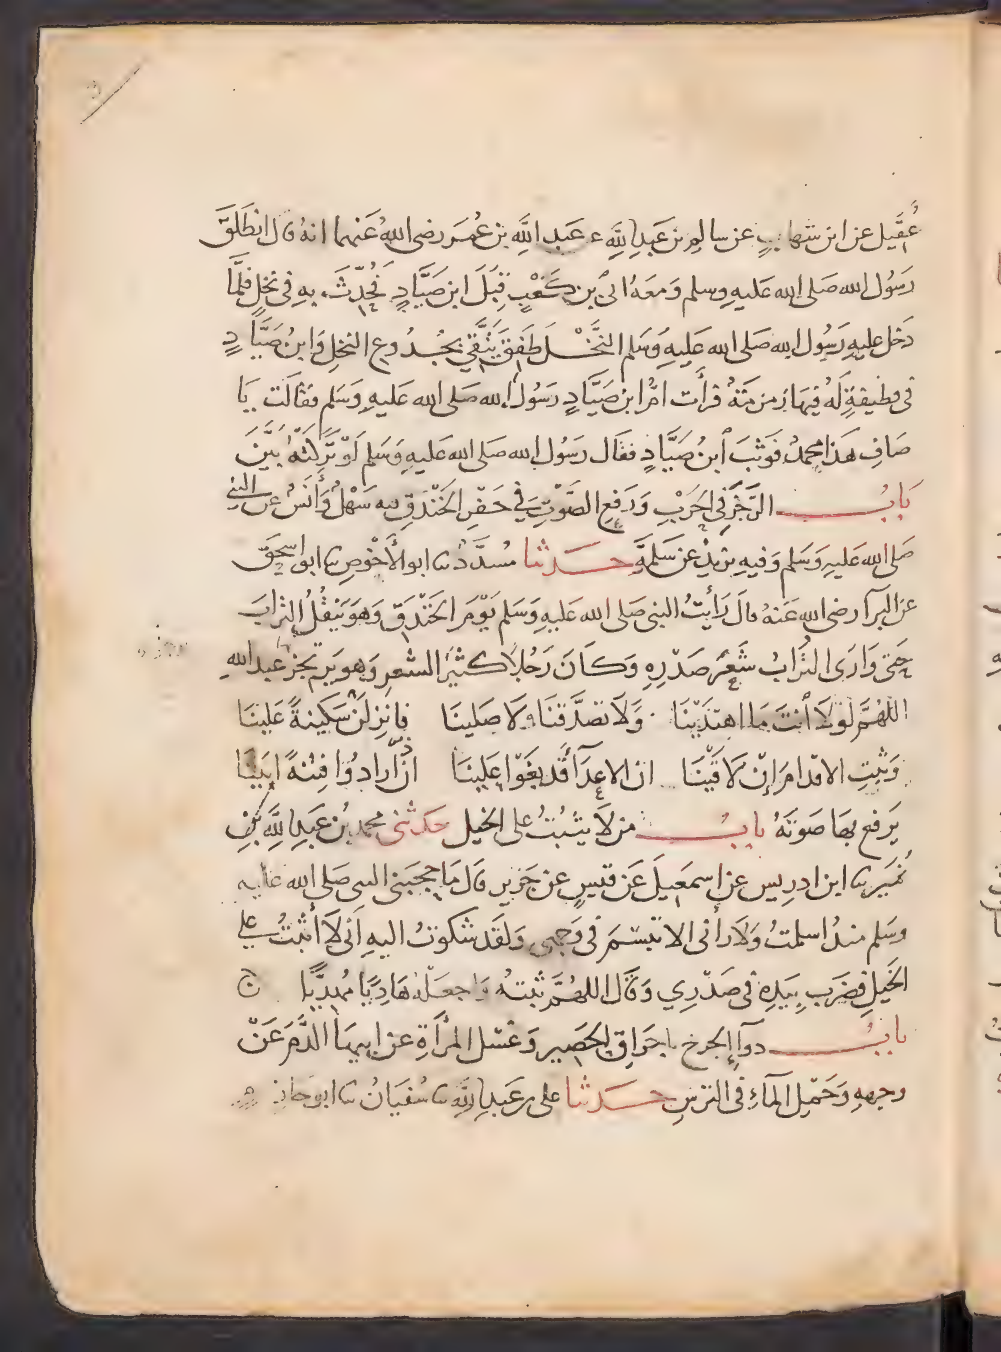 عُقَيل عن ابن شهابٍ عن سالم بن عَبدِ اللهِ عن عَبدِ اللَّهِ بن عُمَر رضى اللهُ عَنهما انهُ قال انطَلَقَ
رَسُول الله صَلى الله عَليهِ وسلم وَمعَهُ اُبَى بن كَعْبٍ قِبَلَ ابن صَيَّادٍ فَحُدِّثَ بهِ فى نَخلٍ فلمَّا
دَخل عليهِ رَسُول الله صَلى الله عَليهِ وَسَلم النَّخْل طَفِقَ يَتَّقى بجُذُوع النخلِ وَابنُ صَيَّادٍ
فى قطيفةٍ لَهُ فيهَا رَمرَمَةٌ فرأَت امُّ ابن صَيَّادٍ رَسُولَ الله صلى الله عَليهِ وَسَلم فقَالَت يَا
صَافِ هَذَا محمدٌ فَوثبَ ابنُ صَيَّادٍ فقَال رَسُول الله صلى الله عَليهِ وَسَلم لَوْ تَرَكَتْهُ بَيَّنَ
بَابُ الرَّجَزِ فى الحَرْبِ وَرَفعِ الصَّوْتِ فى حَفْرِ الخَنْدَقِ فيه سَهْلٌ وَأَنَسٌ عن النبى
صَلى الله عَليهِ وَسَلم وَفيهِ يزيدُ عن سَلمةَ حَدثنا مُسدَّدٌ ثنا ابو الأَحْوصِ ثنا ابو اسحق
عن البرآ رضى الله عَنهُ قالَ رَأَيتُ النبى صَلى الله عَليهِ وَسَلم يَوْمَ الخَنْدَقِ وَهوَ يَنقُلُ التُرابَ
حَتى وَارَى التُّرَابُ شَعَرَ صَدْرِهِ وَكَانَ رَجُلاً كثيْرَ الشعَرِ وَهو يَرتجزُ برجز عَبد الله
اللهُمَّ لَوْلاَ أنتَ مَا اهتَدَيْنَا وَلاَ تصَدَّقنَا وَلا صَلينَا فانزلَنْ سَكينةً عَلينَا
وَثبِّتِ الاقدَامَ إنْ لاَقَيْنَا ان الاعدَآ قَد بَغَوْا عَلينَا اذا اَرادُوا فِتنَةً ابَيْنَا
يَرفع بهَا صَوتَهُ بابُ من لاَ يثبُتُ على الخيل حَدثنى محمد بُن عَبدِ اللهِ بنِ
نُمَيرٍ ثنا ابن ادريس عن اسمَعيلَ عَن قيسٍ عن جَرير قالَ مَا حجبَنى النبى صَلى الله عليه
وسَلم منذُ اسلمتُ وَلاَ رأنى الا تبَسَّمَ فى وَجهى وَلقَد شكوتُ اليهِ اَنى لاَ أثبتُ على
الخَيلِ فضَرَب بيَدِهِ فى صَدْرِي وَقالَ اللهُمَّ ثبّتهُ وَاجعَلهُ هَاديًا مُهديًّا
بابُ دوآءِ الجرح باحرَاقِ الحَصير وَغسْلِ المرأةِ عن ابيهَا الدَّمَ عَنْ
وجههِ وَحَمْلِ المآءِ فى الترسِ حَدثنا على بن عَبدِ اللهِ ثنا سُفيَانُ ثنا ابو حازم